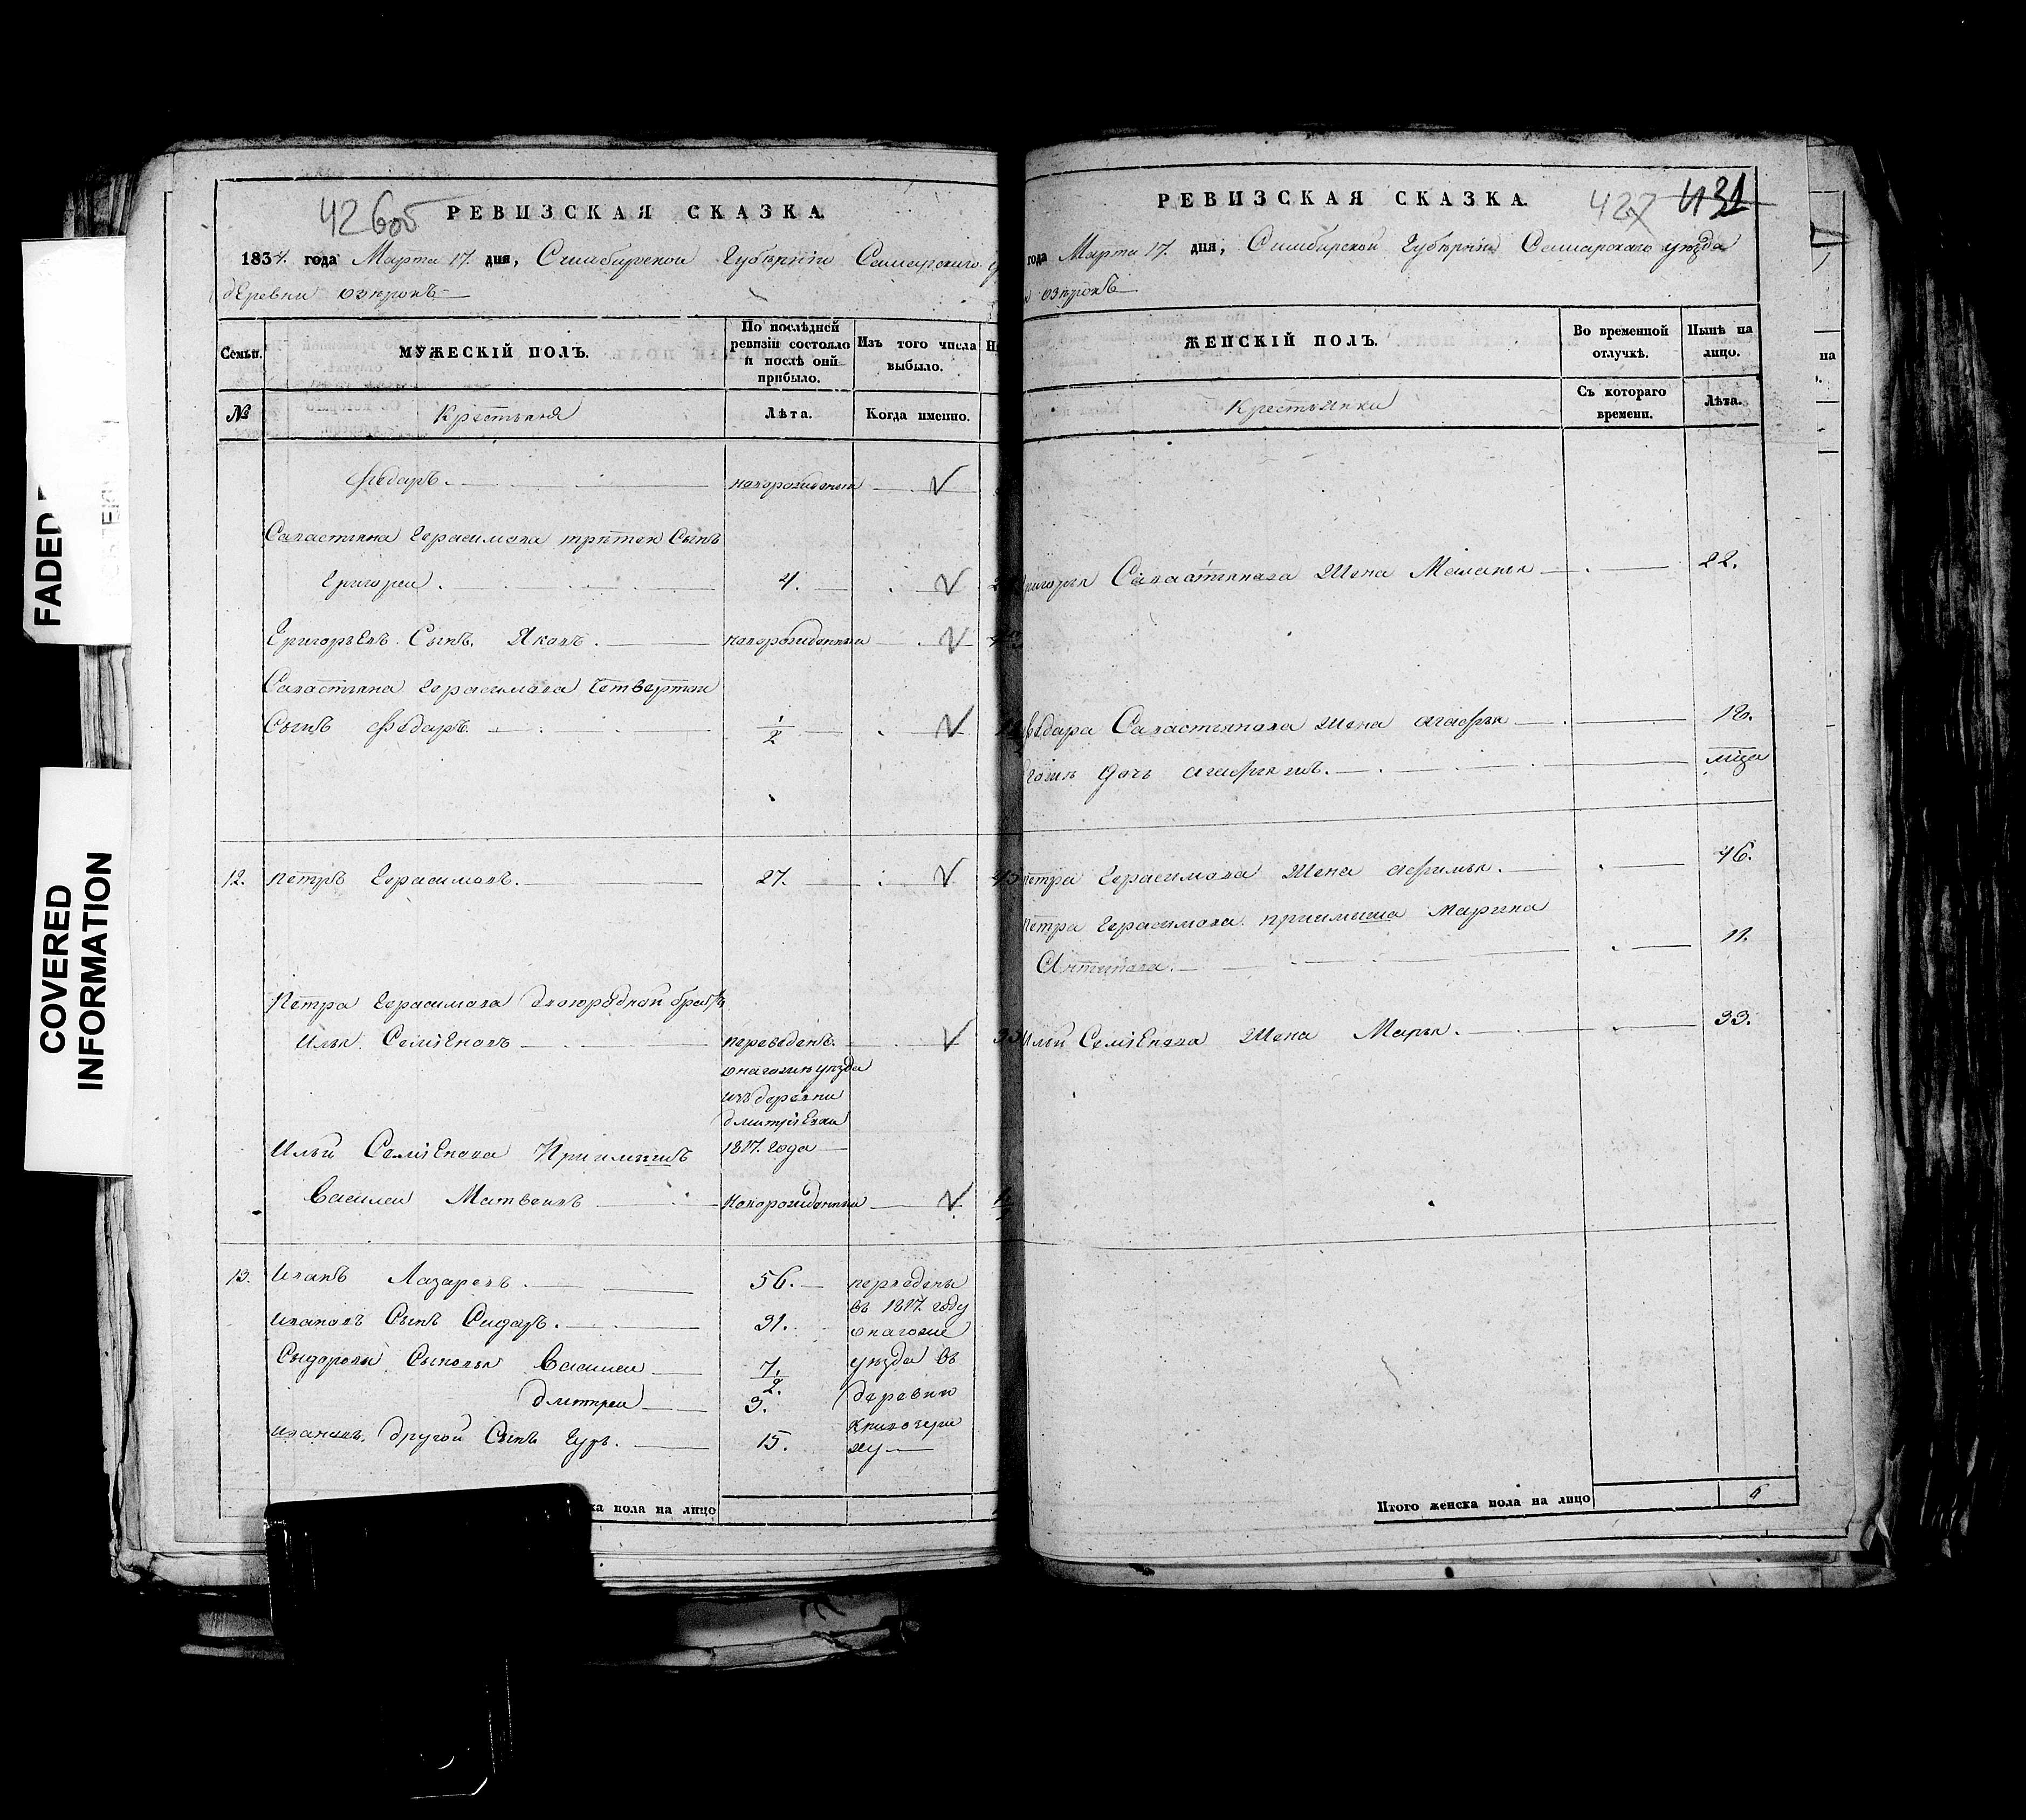 FADED
COVERED
INFORMATION
426об
РЕВИЗСКАЯ СКАЗКА.
1834. года Марта 17. дня, Симбирской Губерніи Самарскаго
деревни озерокъ
Семьи.
МУЖЕСКІЙ ПОЛЪ.
По послѣдней ревизіи состояло и послѣ оній прибыло.
Изъ того числа выбыло.
№
Крестьяня
Лѣта.
Когда именно.
Фѣдаръ.
новорожденныи
Савастьяна Герасимова третеи Сынъ
Григореи. 4.
Григорьевъ Сынъ Яковъ. новорожденныи
Савастьяна Герасимова Четвертои
Сынъ Фѣдаръ. 1/2
12. Петръ Герасимовъ. 27.
Петра Герасимова двоюродной братъ
Илья Семіоновъ переведенъ
онагожъ уезда
изъ деревни
дмитріевки
Ильи Семіонова Приимышъ 1817. года
Василеи Матвеевъ новорожденныи
13. Иванъ Лазаревъ. 56. переведены
въ 1817. году
Ивановъ Сынъ Сидаръ. 31. онагоже
Сидоровы Сыновья Василеи 7. уезда въ
2.
дмитреи 3. деревню
Ивановъ другой Сынъ Гуръ. 15.
ка пола на лицо
РЕВИЗСКАЯ СКАЗКА.
427 431
года Марта 17. дня, Симбирской Губерніи Самарскаго уезда
озерокъ
ЖЕНСКІЙ ПОЛЪ.
Во временной отлучкѣ.
Нынѣ на лицо.
Крестьянки
Съ котораго времени.
Лѣта.
Григорья Савастьянова Жена Меланья 22.
Фѣдара Савастьянова Жена агафья 18.
Егожъ дочь
Петра Герасимова Жена афимья. 46.
Петра Герасимова приимыша Марина
Антипова. 11.
Ильи Семіонова Жена Марья. 33.
Итого женска пола на лицо 6
на